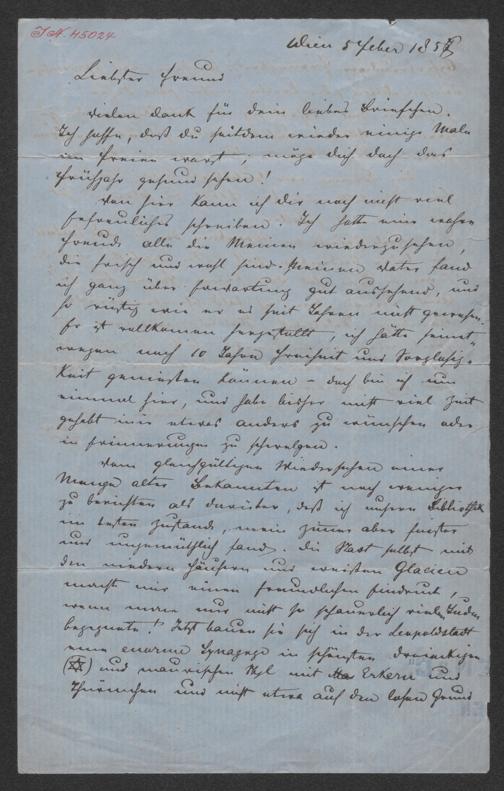 I.N. 45024
Wien 5 Feber 185
Liebster Freund
Vielen Dank für dein liebes Briefchen.
Ich hoffe, daß du seitdem wieder einige Male
im Freien warst, möge dich doch das
Frühjahr gesund sehen!
Von hier kann ich dir noch nicht viel
Erfreuliches schreiben. Ich hatte eine wahre
Freude alle die Meinen wiederzusehen,
die frisch und wohl sind. Meinen Vater fand
ich ganz über Erwartung gut aussehend, und
so rüstig wie er es seit Jahren nicht gewesen.
Er ist vollkommen hergestellt, ich hätte seinet-
wegen noch 10 Jahre Freiheit und Sorglosig-
keit genießen können – doch bin ich nun
einmal hier, und habe bisher nicht viel Zeit
gehabt mir etwas anders zu wünschen oder
in Erinnerungen zu schwelgen.
Vom gleichgültigen Wiedersehen einer
Menge alter Bekannten ist noch weniger
zu berichten als darüber, daß ich unsere Bibliothek
im besten Zustande, mein Zimmer aber finster
und ungemüthlich fand. Die Stadt selbst mit
den niedern Häusern und weißen Glacien
macht mir einen freundlichen Eindruck,
wenn man nur nicht so schauerlich viele Juden
begegnete! Jetzt bauen sie sich in der Leopoldstadt
eine enorme Synagoge in schönsten dreieckigen
(✡) und maurischen Styl mit Erkern und
Thürmchen und nicht etwa auf den losen Grund